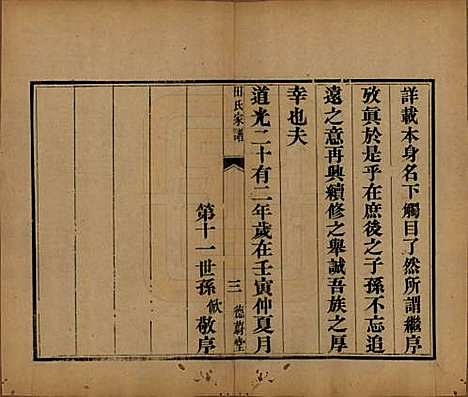 詳載本身名下觸目了然所謂繼序
攷眞於是乎在庶後之子孫不忘追
遠之意再興續修之舉誠吾族之厚
幸也夫
田氏家譜
三
德蔚堂
道光二十有二年歲在壬寅仲夏月
第十一世孫 敬序